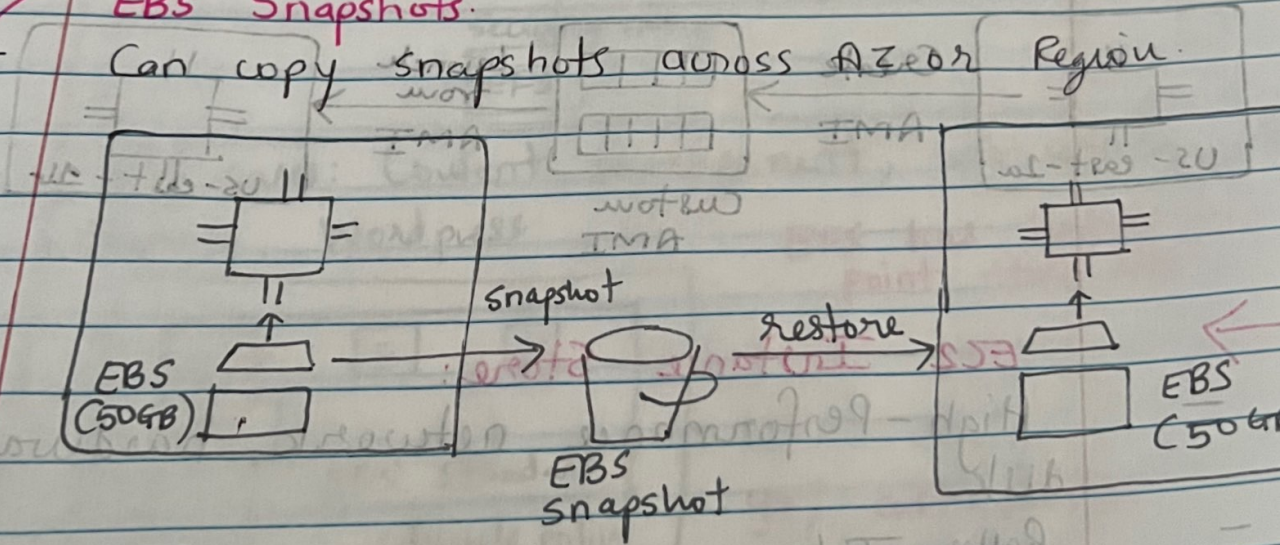 EBS Snapshots.
- Can copy snapshots across AZ or Region.
snapshot
restore
EBS
(50GB)
EBS
snapshot
EBS
(50 G